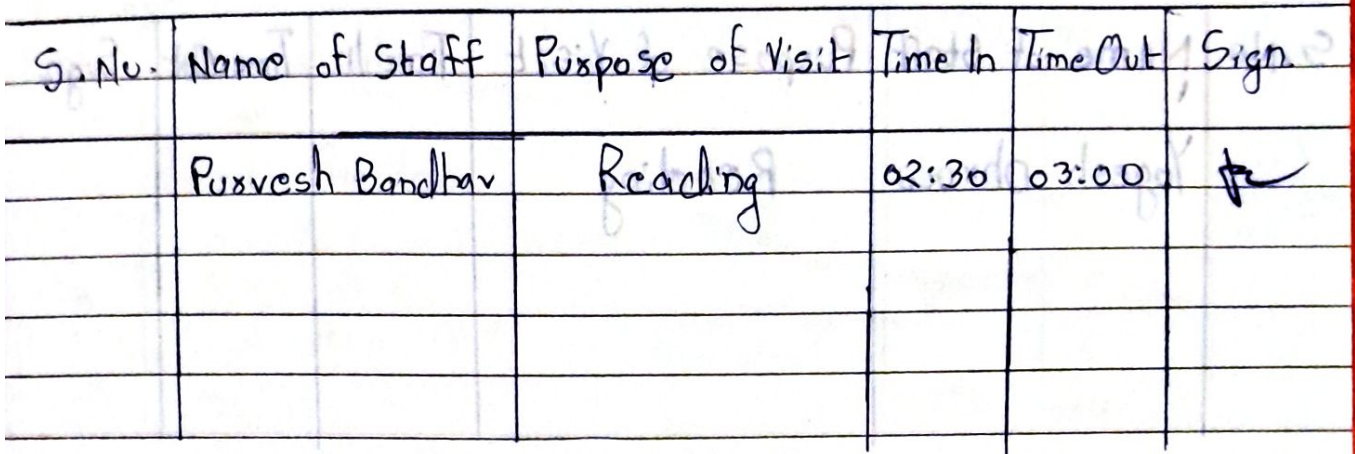 S. No. Name of Staff Purpose of Visit Time In Time Out Sign.
Purvesh Bandhav Reading 02:30 03:00